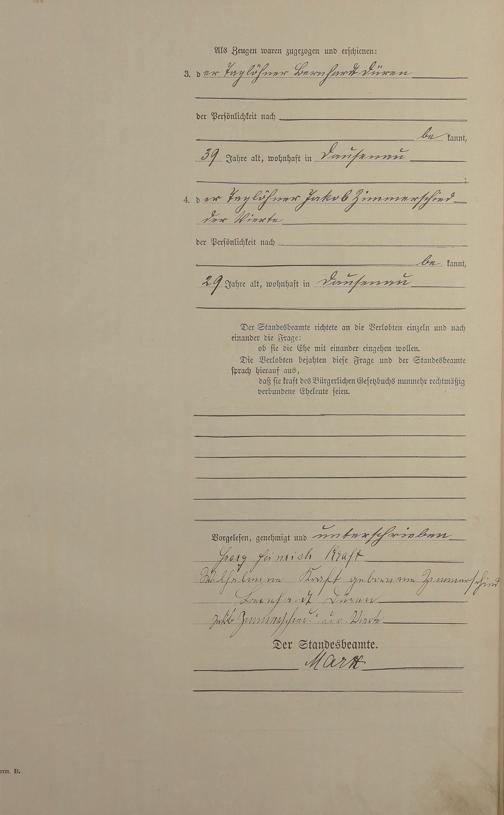 Als Zeugen waren zugezogen und erschienen:
3. der Taglöhner Bernhardt Düren
der Persönlichkeit nach
bekannt,
39 Jahre alt, wohnhaft in Dausenau
;
4. der Taglöhner Jakob Zimmerschied
der Vierte
der Persönlichkeit nach
bekannt,
29 Jahre alt, wohnhaft in Dausenau
Der Standesbeamte richtete an die Verlobten einzeln und nach
einander die Frage:
ob sie die Ehe mit einander eingehen wollen.
Die Verlobten bejahten diese Frage und der Standesbeamte
sprach hierauf aus,
daß sie kraft des Bürgerlichen Gesetzbuchs nunmehr rechtmäßig
verbundene Eheleute seien.
Vorgelesen, genehmigt und unterschrieben
Georg Heinrich Kraft
Wilhelmine Kraft geborenne Zimmerschied
Bernhardt Düren
Jakob Zimmerschied der Vierte
Der Standesbeamte.
Marx
rm. B.